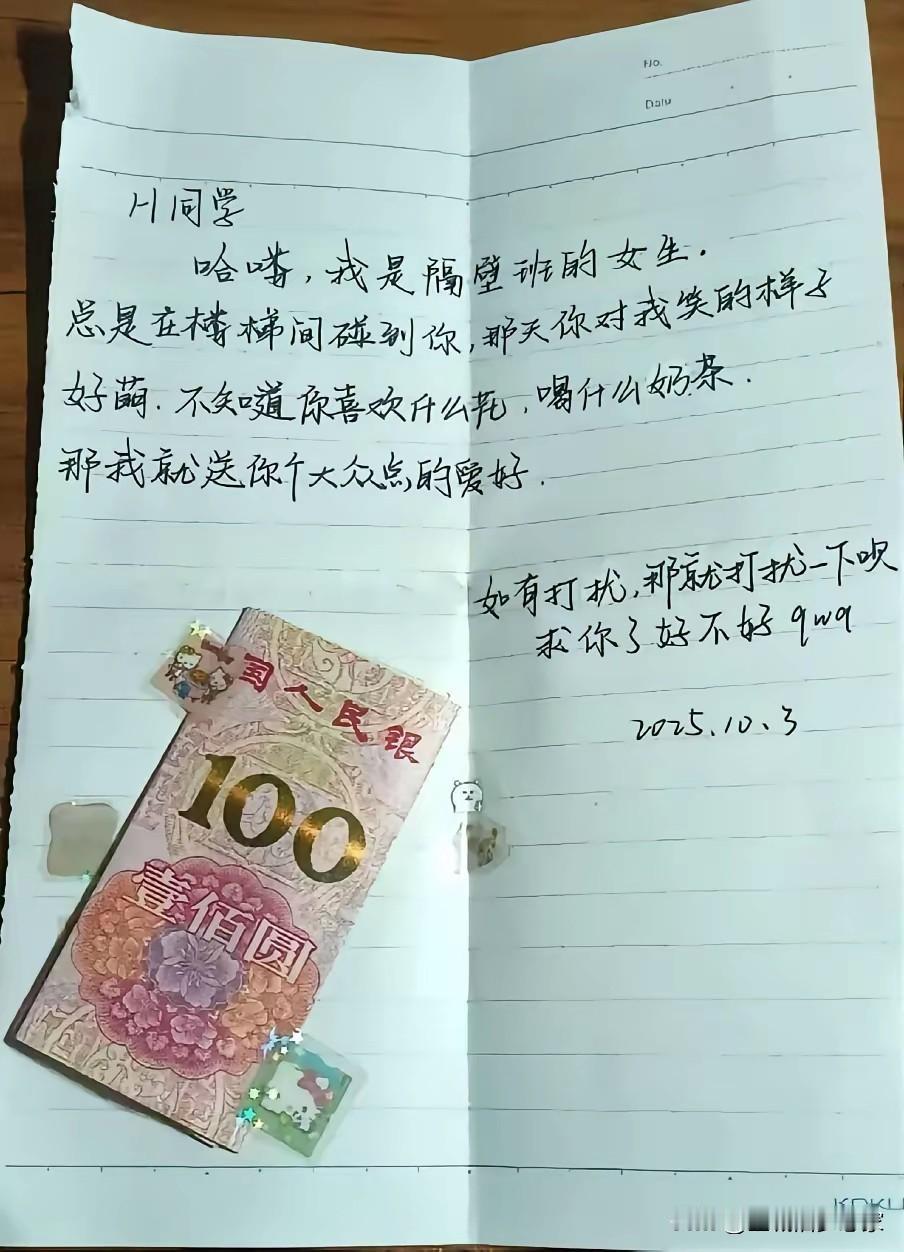 No.
Date
H同学
哈喽，我是隔壁班的女生.
总是在楼梯间碰到你，那天你对我笑的样子
好萌. 不知道你喜欢什么花，喝什么奶茶.
那我就送你个大众点的爱好.
如有打扰，那就打扰一下呗
求你了好不好 qwq
2025.10.3
国人民银
100
壹佰圆
KOKU